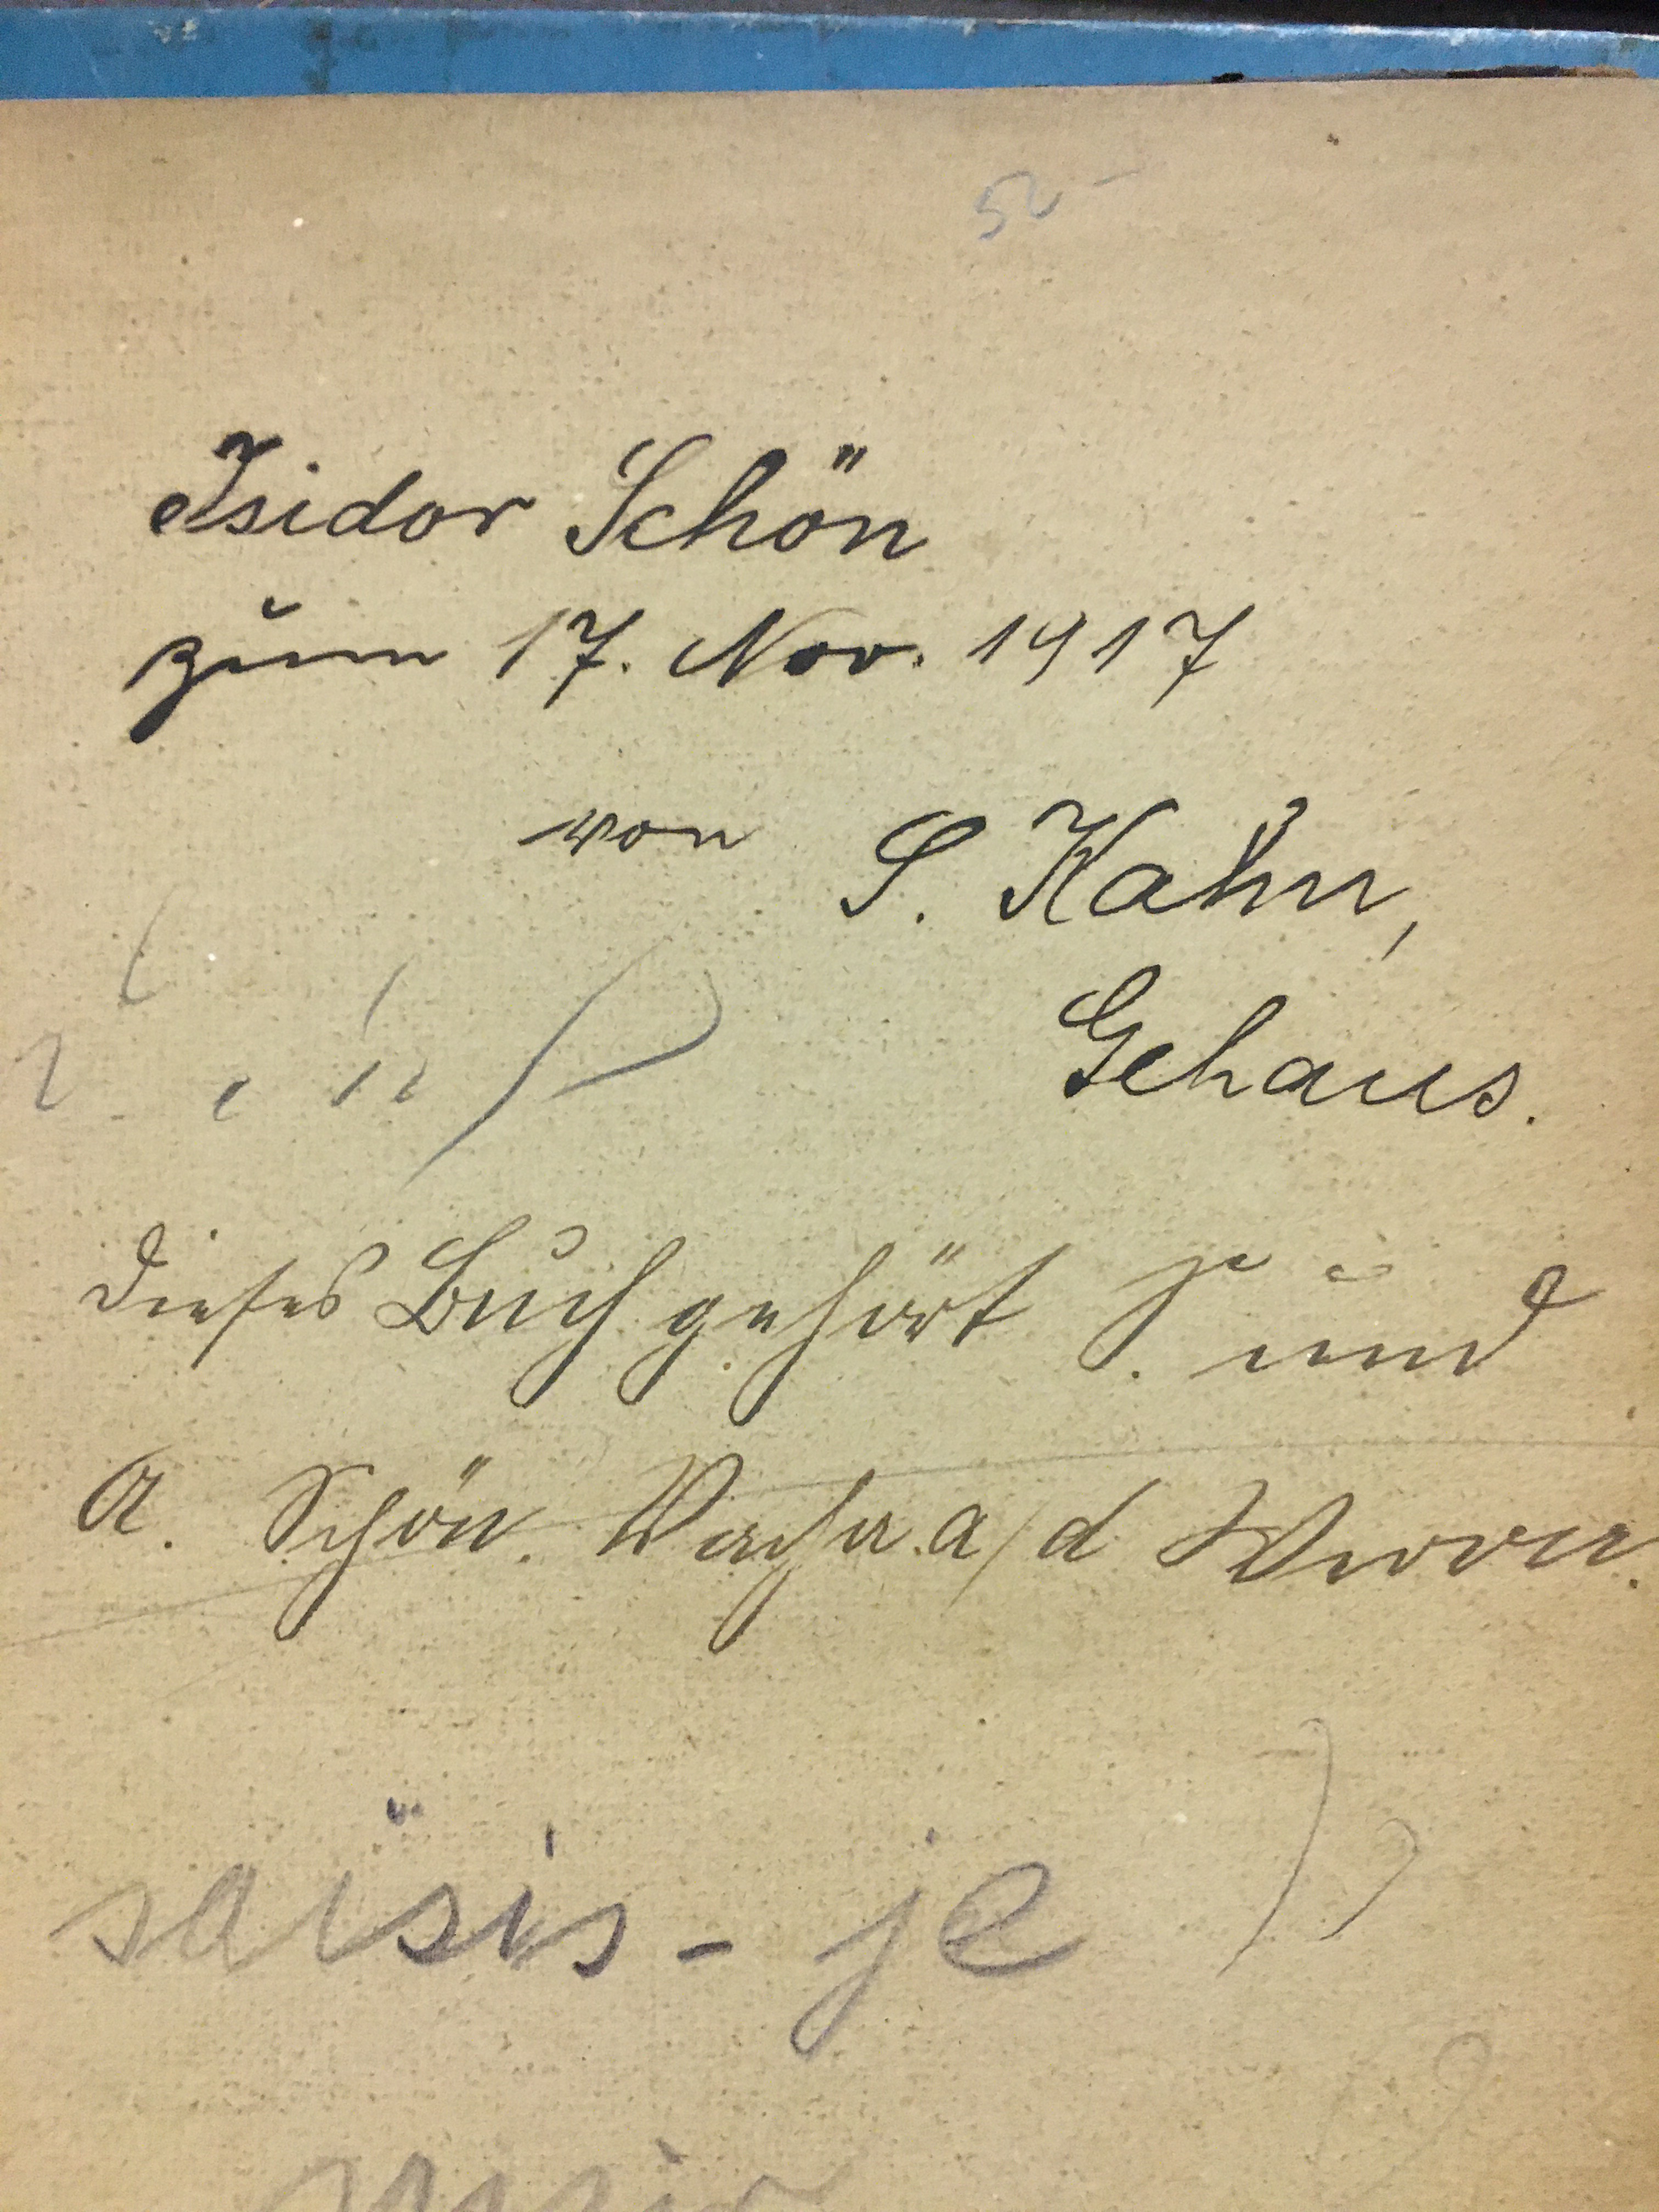 Isidor Schön
zum 17. Nov. 1917
von S. Kahn,
Gehaus.
Dieses Buch gehört J. und
A. Schön. Vacha a/d Werra.
saïsis - je